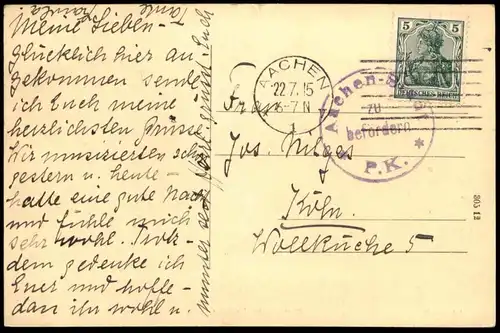 Meine Lieben-
Glücklich hier an
gekommen sende
ich Euch meine
herzlichsten Grüsse
Wir musizierten schon
gestern u. heute-
hatte eine gute Nacht
und fühle mich
sehr wohl. Trotz-
dem gedenke ich
Euer und hoffe-
dass ihr wohl u.
munter seid
Euch
Tante
AACHEN
22.7.15
6-7N
5 5
DEUTSCHES REICH
Aachen
zu
befördern
P.K.
Frau
Jos. Milges
Köln
Wollküche 5